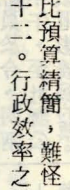 比預算精簡，難怪
十二。行政效率之